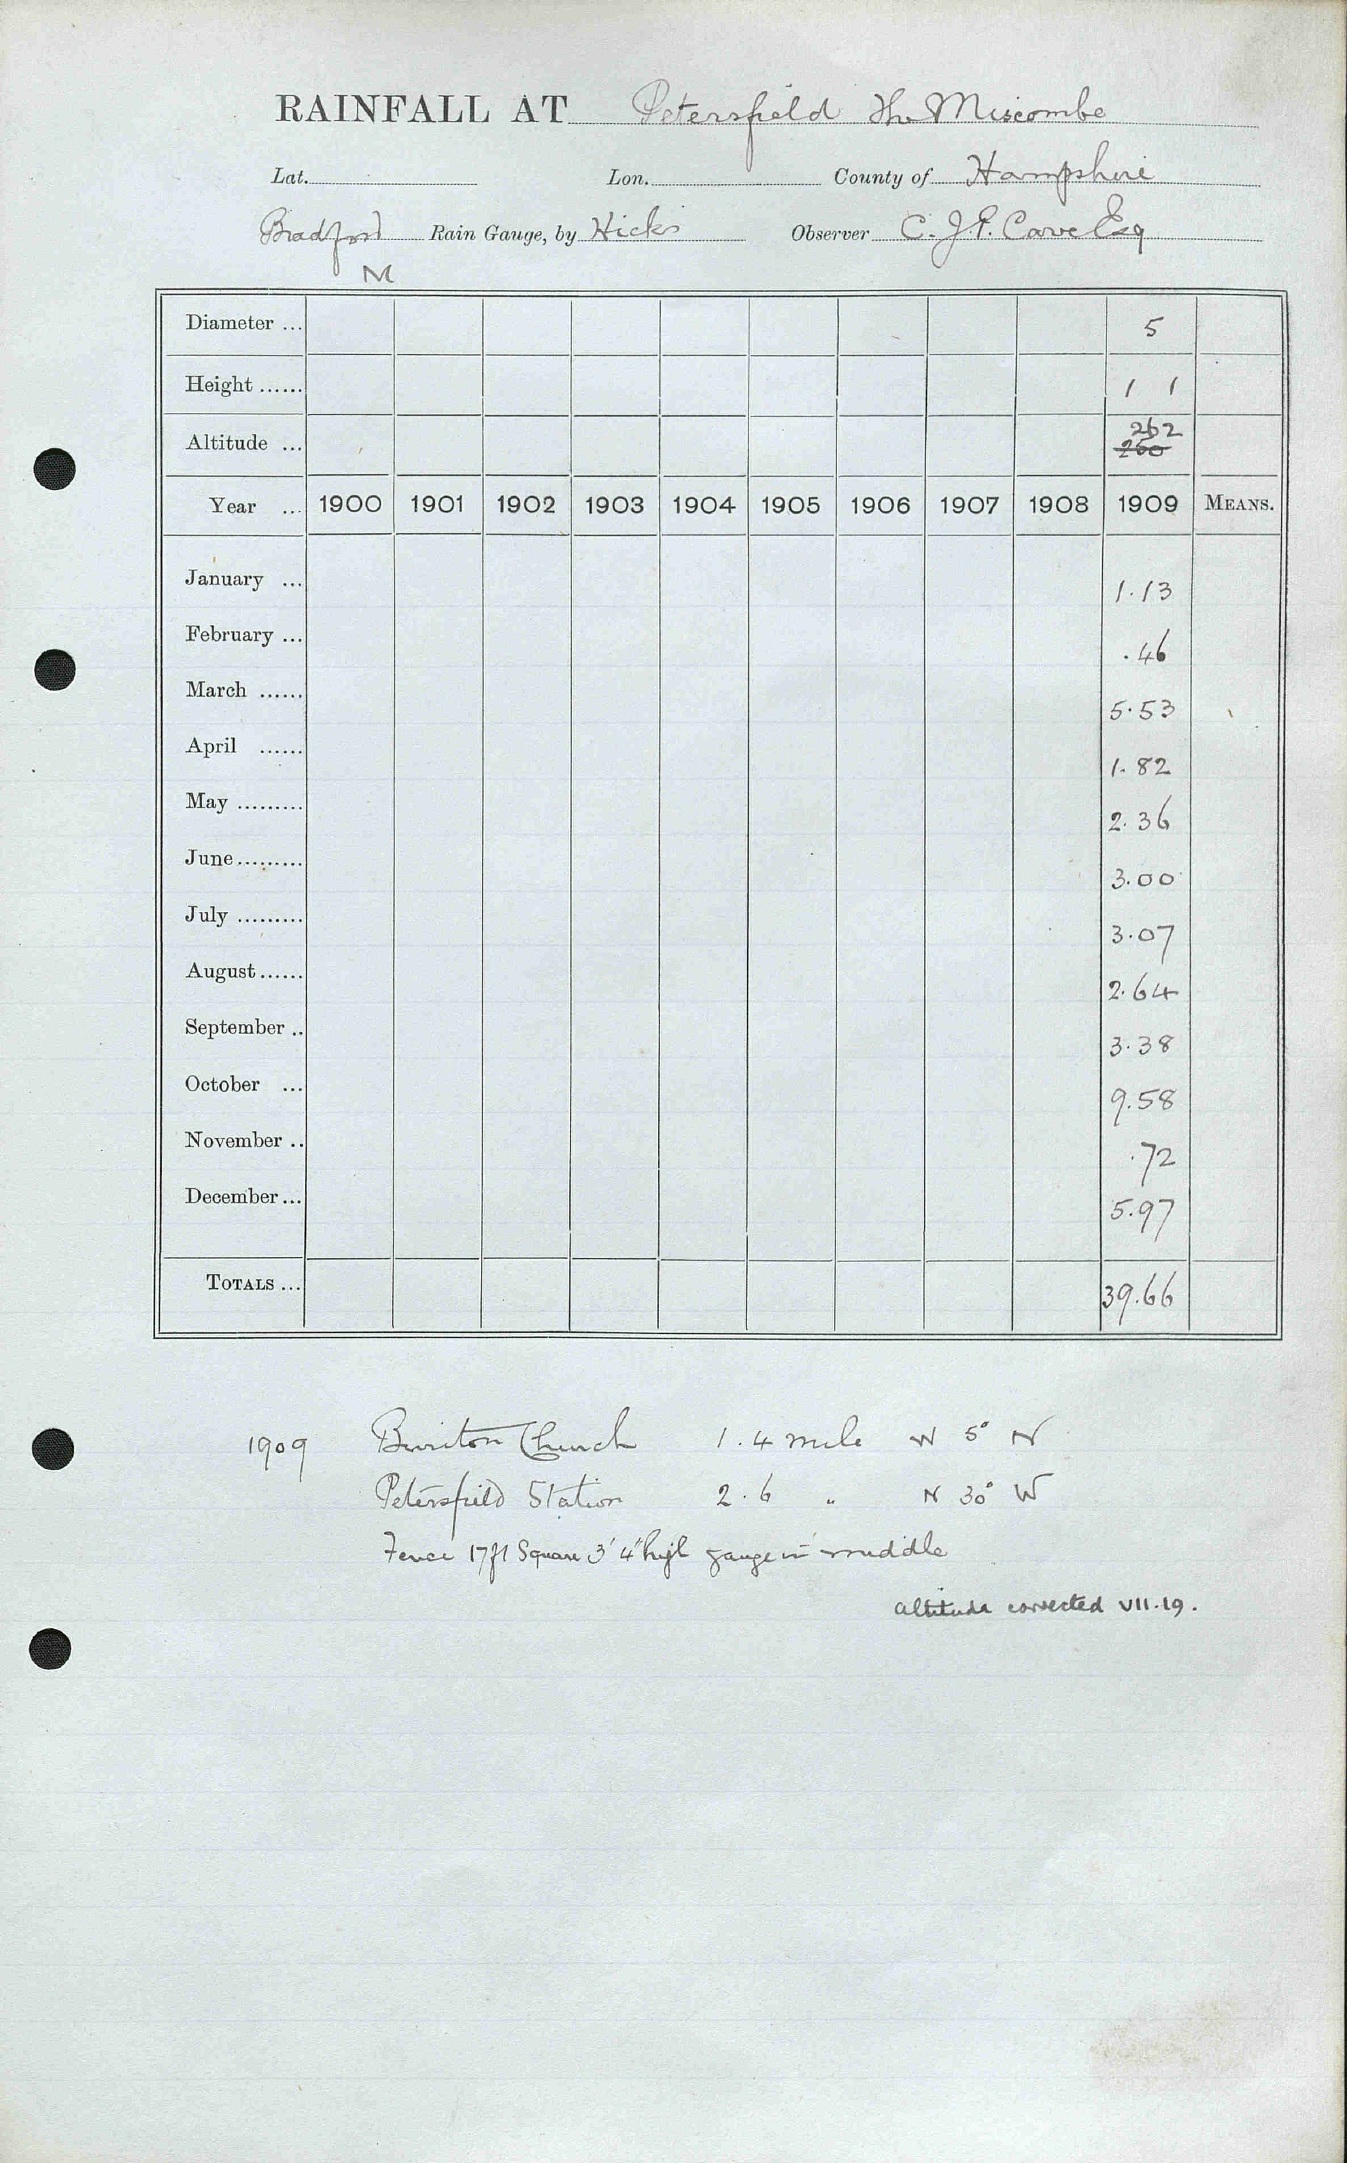 RAINFALL AT Petersfield The Miscombe
Lat. Lon. County of Hampshire
Bradford Rain Gauge, by Hicks Observer C. J. P. Cave Esq
M
Diameter ... 5
Height ...... 1 1
Altitude ... 262
260
Year ... 1900 1901 1902 1903 1904 1905 1906 1907 1908 1909 MEANS.
January ... 1.13
February ... .46
March ...... 5.53
April ...... 1.82
May ......... 2.36
June ......... 3.00
July ......... 3.07
August ...... 2.64
September .. 3.38
October ... 9.58
November .. .72
December ... 5.97
TOTALS ... 39.66
1909 Buriton Church 1.4 mile W 5° N
Petersfield Station 2.6 " N 30° W
Fence 17ft Square 3' 4" high gauge in middle
Altitude corrected VII.19.